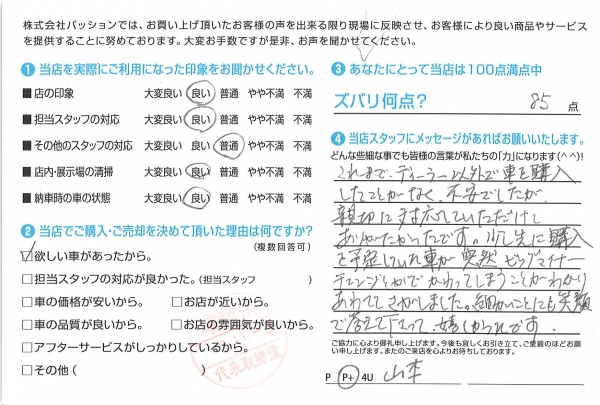 株式会社パッションでは、お買い上げ頂いたお客様の声を出来る限り現場に反映させ、お客様により良い商品やサービス
を提供することに努めております。大変お手数ですが是非、お声を聞かせてください。
1 当店を実際にご利用になった印象をお聞かせください。
■店の印象 大変良い 良い 普通 やや不満 不満
■担当スタッフの対応 大変良い 良い 普通 やや不満 不満
■その他のスタッフの対応 大変良い 良い 普通 やや不満 不満
■店内・展示場の清掃 大変良い 良い 普通 やや不満 不満
■納車時の車の状態 大変良い 良い 普通 やや不満 不満
2 当店でご購入・ご売却を決めて頂いた理由は何ですか?
(複数回答可)
☑欲しい車があったから。
□担当スタッフの対応が良かった。(担当スタッフ )
□車の価格が安いから。 □お店が近いから。
□車の品質が良いから。 □お店の雰囲気が良いから。
□アフターサービスがしっかりしているから。
□その他( )
代表取締役
3 あなたにとって当店は100点満点中
ズバリ何点? 85 点
4 当店スタッフにメッセージがあればお願いいたします。
どんな些細な事でも皆様の言葉が私たちの「力」になります(^^)!
これまで、ディーラー以外で車を購入
したことがなく、不安でしたが、
親切に対応していただけて
ありがたかったです。少し先に購入
を予定していた車が突然ビッグマイナー
チェンジかでかわってしまうことがわかり
あわててさがしました。細かいことにも笑顔
で答えて下さって、嬉しかったです。
ご協力に心より御礼申し上げます。今後も宜しくお引き立て、ご愛顧のほどお願
い申し上げます。またのご来店を心よりお待ちしております。
P P+ 4U 山本